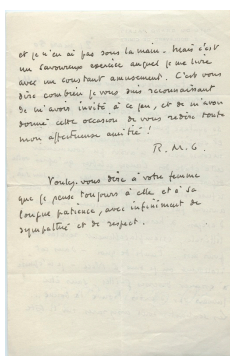 et je n'en ai pas sous la main. Mais c'est
un savoureux exercice auquel je me livre
avec un constant amusement. C'est vous
dire combien je vous suis reconnaissant
de m'avoir invité à ce jeu, et de m'avoir
donné cette occasion de vous redire toute
mon affectueuse amitié !
R. M. G.
Voulez-vous dire à votre femme
que je pense toujours à elle et à sa
longue patience, avec infiniment de
sympathie et de respect.